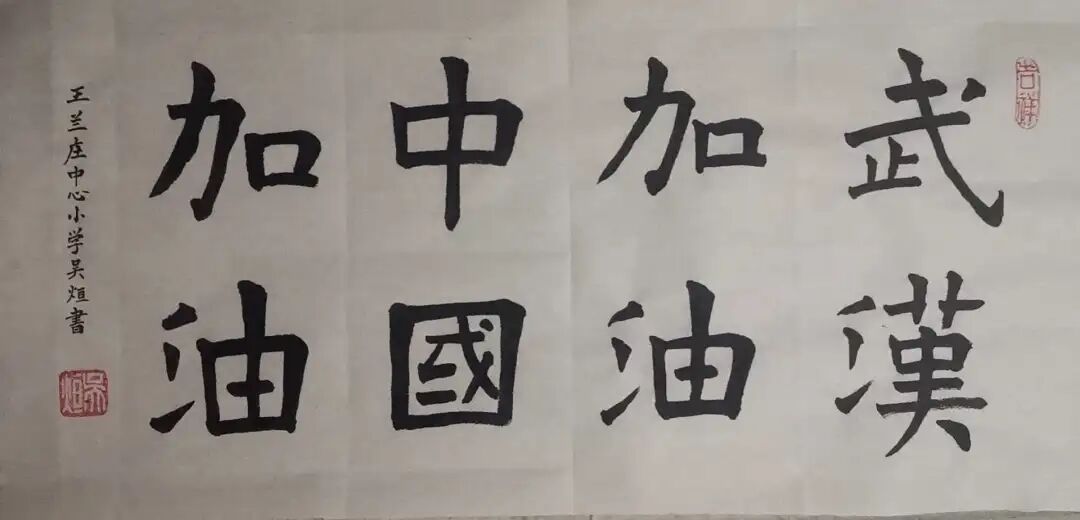 吉祥
武漢
加油
中國
加油
王兰庄中心小学吴烜書
吴烜